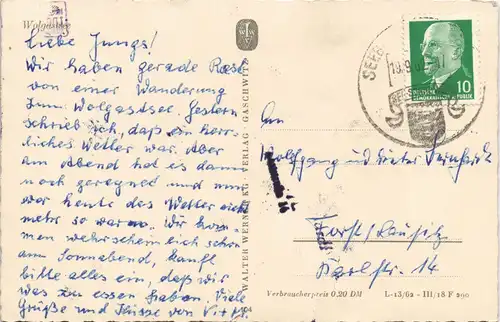 Wolgastsee
Liebe Jungs!
Wir haben gerade Rast
von einer Wanderung
zum Wolgastsee. Gestern
schrieb ich, daß ein herr-
liches Wetter war. Aber
am Abend hat es dann
noch geregnet und nun
war heute das Wetter nicht
mehr so warm. Wir kom-
men wahrscheinlich schon
am Sonnabend, kauft
bitte alles ein, daß wir
was zu essen haben. Viele
Grüße und Küsse von V. + M.
WALTER WERNER KG VERLAG GASCHWITZ
DEUTSCHE
DEMOKRATISCHE REPUBLIK 10
An
Wolfgang und Dieter
Forst/Lausitz
Karlstr. 14
Verbraucherpreis 0,20 DM L-13/62 - III/18 F 290